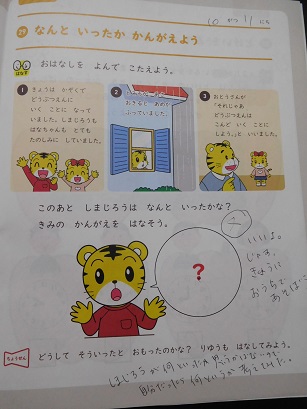 10 がつ 11 にち
29 なんと いったか かんがえよう
はなす
おはなしを よんで こたえよう。
1
きょうは かぞくで
どうぶつえんに
いく ことに なって
いました。しまじろうも
はなちゃんも とても
たのしみに していました。
2
おきると あめが
ふっていました。
3
おとうさんが
「それじゃあ
どうぶつえんは
こんど いく ことに
しよう。」と いいました。
このあと しまじろうは なんと いったかな?
きみの かんがえを はなそう。
?
いいよ。
じゃあ、
きょうは
おうちで
あそぼ
ちょうせん
どうして そういったと おもったのかな? りゆうも はなしてみよう。